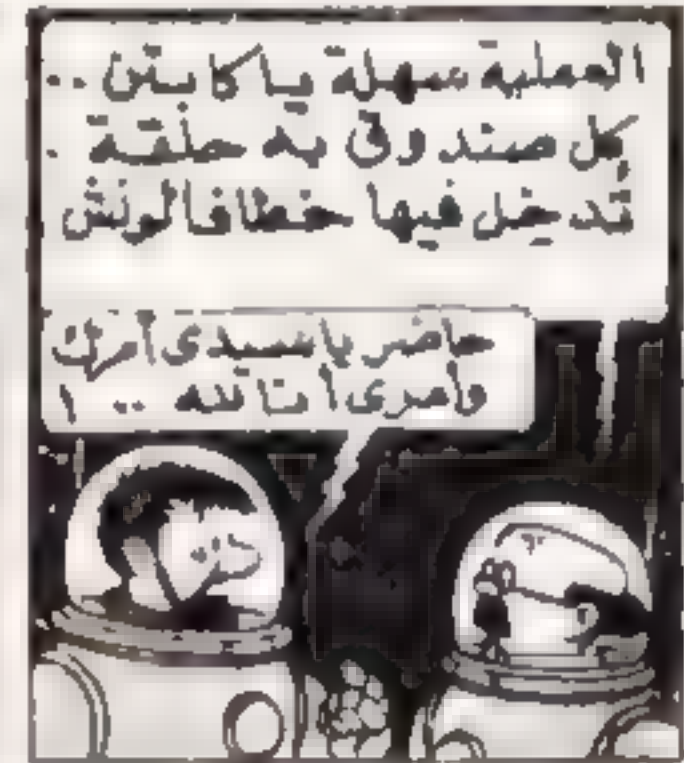 العملية سهلة يا كابتن ..
كل صندوق به حلقة .
تدخل فيها خطاف الونش
حاضر يا سيدى أمرك
وأمرى أنا لله .. !